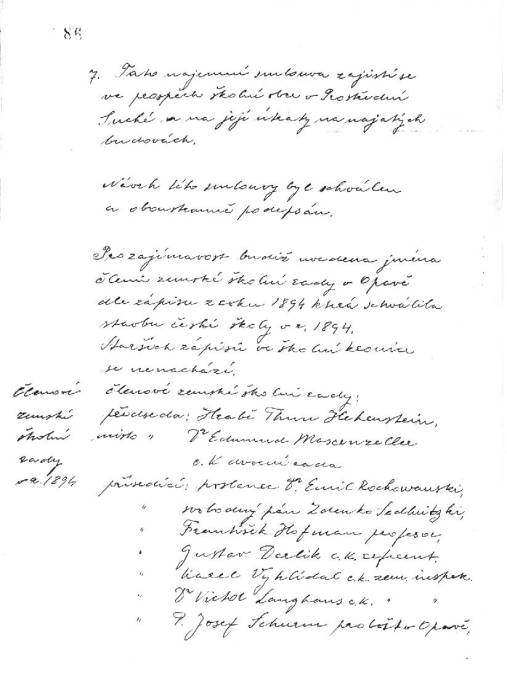 86
7. Tato najemní smlouva zajistí se
ve prospěch školní obce v Prostřední
Suché a na její útraty na najatých
budovách.
Návrh této smlouvy byl schválen
a oboustraně podepsán.
Pro zajímavost budiž uvedena jména
členů zemské školní rady v Opavě
dle zápisu z roku 1894 která schválila
stavbu české školy v r. 1894.
Starších zápisů ve školní kronice
se nenachází.
Členové
zemské
školní
rady
v r. 1894
členové zemské školní rady:
předseda: Hrabě Thun Hohenstein,
místo " Dr Edmund
c. K dvorní rada
přísedící: poslanec Dr. Emil Rochowanski,
" svobodný pán Zdenko Sedlnitzki,
" František Hofman profesor,
" Gustav c. k. referent.
" Karel Vyhlídal c. k. zem. inspek.
" Dr Victol Langhans c. k. " "
" P. Josef Schurm probošt v Opavě,